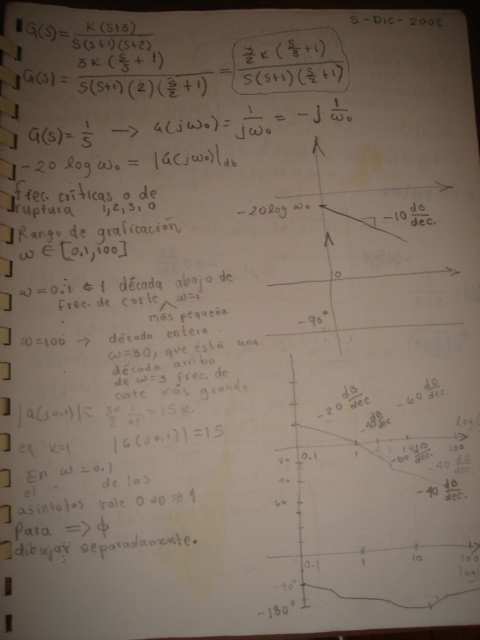 5-DIC-2002
G(s)= K(s+3) / s(s+1)(s+2)
G(s)= 3K(s/3+1) / s(s+1)(2)(s/2+1) = 3/2 K(s/3+1) / s(s+1)(s/2+1)
G(s)= 1/s → G(jω₀)= 1/jω₀ = -j 1/ω₀
-20 log ω₀ = |G(jω₀)|db
frec. críticas o de
ruptura 1,2,3,0
Rango de graficación
ω ∈ [0.1,100]
ω=0.1 1 década abajo de
frec. de corte ω=1
más pequeña
ω=100 → década entera
ω=30, que está una
década arriba
de ω=3 frec. de
corte más grande
|G(j0.1)| ≈ 3K/2 1/0.1 = 15K
K=1 |G(j0.1)|=15
En ω=0.1
el de las
asíntotas vale 0 db
Para ⇒ ϕ
dibujar separadamente.
-20 log ω₀
-10 db/dec.
0
-90°
-20 db/dec
-40 db/dec
-60 db/dec
0.1 1 100
20
40
60
-60 db/dec
-40 db/dec
-40 db/dec.
0.1 1 10 100
-90°
-180°